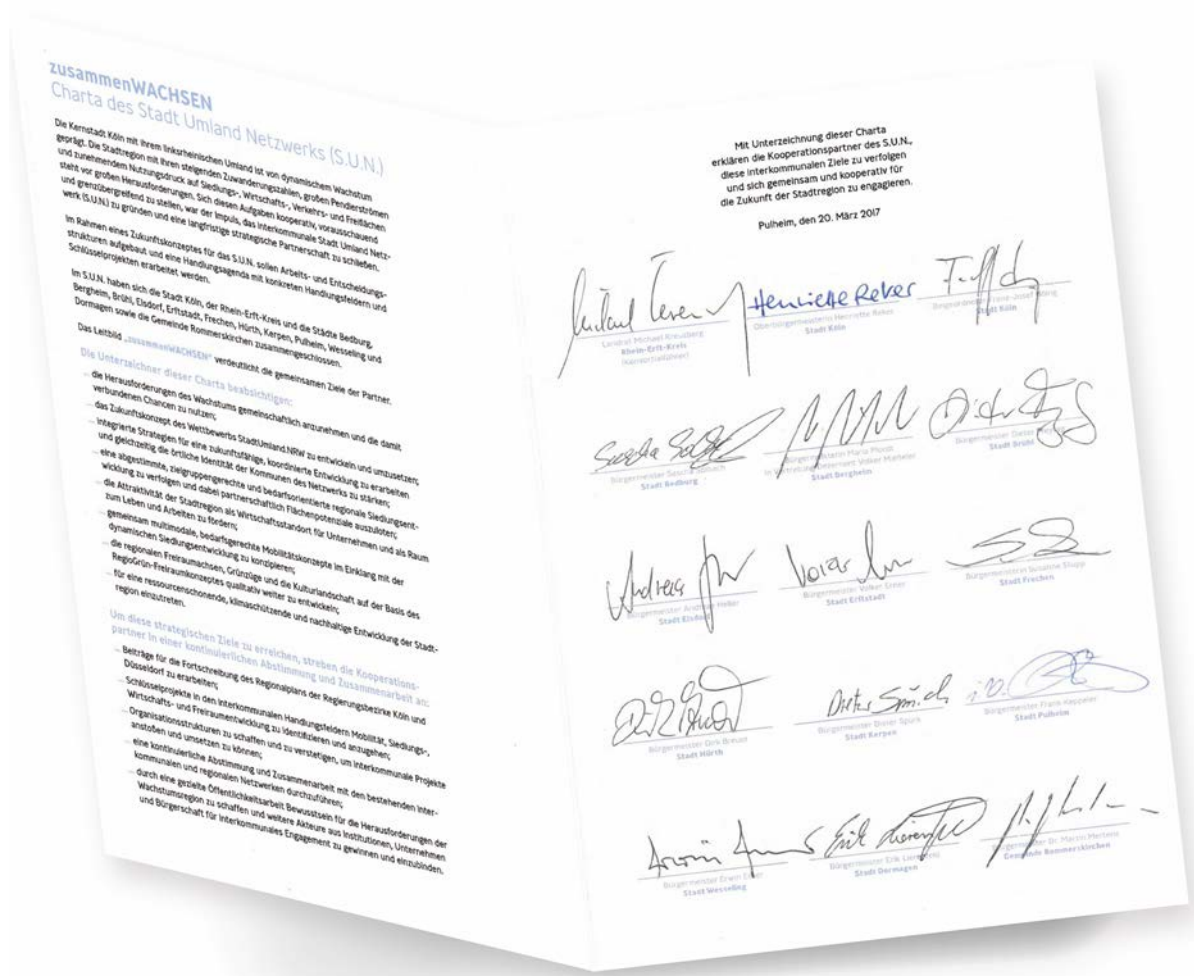 zusammenWACHSEN
Charta des Stadt Umland Netzwerks (S.U.N.)
Die Kernstadt Köln mit ihrem linksrheinischen Umland ist von dynamischem Wachstum
geprägt. Die Stadtregion mit ihren steigenden Zuwanderungszahlen, großen Pendlerströmen
und zunehmendem Nutzungsdruck auf Siedlungs-, Wirtschafts-, Verkehrs- und Freiflächen
steht vor großen Herausforderungen. Sich diesen Aufgaben kooperativ, vorausschauend
und grenzübergreifend zu stellen, war der Impuls, das interkommunale Stadt Umland Netz-
werk (S.U.N.) zu gründen und eine langfristige strategische Partnerschaft zu schließen.
Im Rahmen eines Zukunftskonzeptes für das S.U.N. sollen Arbeits- und Entscheidungs-
strukturen aufgebaut und eine Handlungsagenda mit konkreten Handlungsfeldern und
Schlüsselprojekten erarbeitet werden.
Im S.U.N. haben sich die Stadt Köln, der Rhein-Erft-Kreis und die Städte Bedburg,
Bergheim, Brühl, Elsdorf, Erftstadt, Frechen, Hürth, Kerpen, Pulheim, Wesseling und
Dormagen sowie die Gemeinde Rommerskirchen zusammengeschlossen.
Das Leitbild „zusammenWACHSEN“ verdeutlicht die gemeinsamen Ziele der Partner.
Die Unterzeichner dieser Charta beabsichtigen:
– die Herausforderungen des Wachstums gemeinschaftlich anzunehmen und die damit
verbundenen Chancen zu nutzen;
– das Zukunftskonzept des Wettbewerbs StadtUmland.NRW zu entwickeln und umzusetzen;
– integrierte Strategien für eine zukunftsfähige, koordinierte Entwicklung zu erarbeiten
und gleichzeitig die örtliche Identität der Kommunen des Netzwerks zu stärken;
– eine abgestimmte, zielgruppengerechte und bedarfsorientierte regionale Siedlungsent-
wicklung zu verfolgen und dabei partnerschaftlich Flächenpotenziale auszuloten;
– die Attraktivität der Stadtregion als Wirtschaftsstandort für Unternehmen und als Raum
zum Leben und Arbeiten zu fördern;
– gemeinsam multimodale, bedarfsgerechte Mobilitätskonzepte im Einklang mit der
dynamischen Siedlungsentwicklung zu konzipieren;
– die regionalen Freiraumachsen, Grünzüge und die Kulturlandschaft auf der Basis des
RegioGrün-Freiraumkonzeptes qualitativ weiter zu entwickeln;
– für eine ressourcenschonende, klimaschützende und nachhaltige Entwicklung der Stadt-
region einzutreten.
Um diese strategischen Ziele zu erreichen, streben die Kooperations-
partner in einer kontinuierlichen Abstimmung und Zusammenarbeit an:
– Beiträge für die Fortschreibung des Regionalplans der Regierungsbezirke Köln und
Düsseldorf zu erarbeiten;
– Schlüsselprojekte in den interkommunalen Handlungsfeldern Mobilität, Siedlungs-,
Wirtschafts- und Freiraumentwicklung zu identifizieren und anzugehen;
– Organisationsstrukturen zu schaffen und zu verstetigen, um interkommunale Projekte
anstoßen und umsetzen zu können;
– eine kontinuierliche Abstimmung und Zusammenarbeit mit den bestehenden inter-
kommunalen und regionalen Netzwerken durchzuführen;
– durch eine gezielte Öffentlichkeitsarbeit Bewusstsein für die Herausforderungen der
Wachstumsregion zu schaffen und weitere Akteure aus Institutionen, Unternehmen
und Bürgerschaft für interkommunales Engagement zu gewinnen und einzubinden.
Mit Unterzeichnung dieser Charta
erklären die Kooperationspartner des S.U.N.,
diese interkommunalen Ziele zu verfolgen
und sich gemeinsam und kooperativ für
die Zukunft der Stadtregion zu engagieren.
Pulheim, den 20. März 2017
Henriette Reker
Landrat Michael Kreuzberg
Rhein-Erft-Kreis
Oberbürgermeisterin Henriette Reker
Stadt Köln
Stadt Köln
Bürgermeister Sascha Solbach
Stadt Bedburg
Bürgermeisterin Maria Pfordt
In Vertretung Dezernent Volker Mießeler
Stadt Bergheim
Bürgermeister Dieter
Stadt Brühl
Andreas
Bürgermeister Andreas Heller
Stadt Elsdorf
Bürgermeister Volker Erner
Stadt Erftstadt
Bürgermeisterin Susanne Stupp
Stadt Frechen
Bürgermeister Dirk Breuer
Stadt Hürth
Dieter Spürck
Bürgermeister Dieter Spürck
Stadt Kerpen
i.V.
Bürgermeister Frank Keppeler
Stadt Pulheim
Bürgermeister Erwin Esser
Stadt Wesseling
Erik Lierenfeld
Bürgermeister Erik Lierenfeld
Stadt Dormagen
Bürgermeister Dr. Martin Mertens
Gemeinde Rommerskirchen